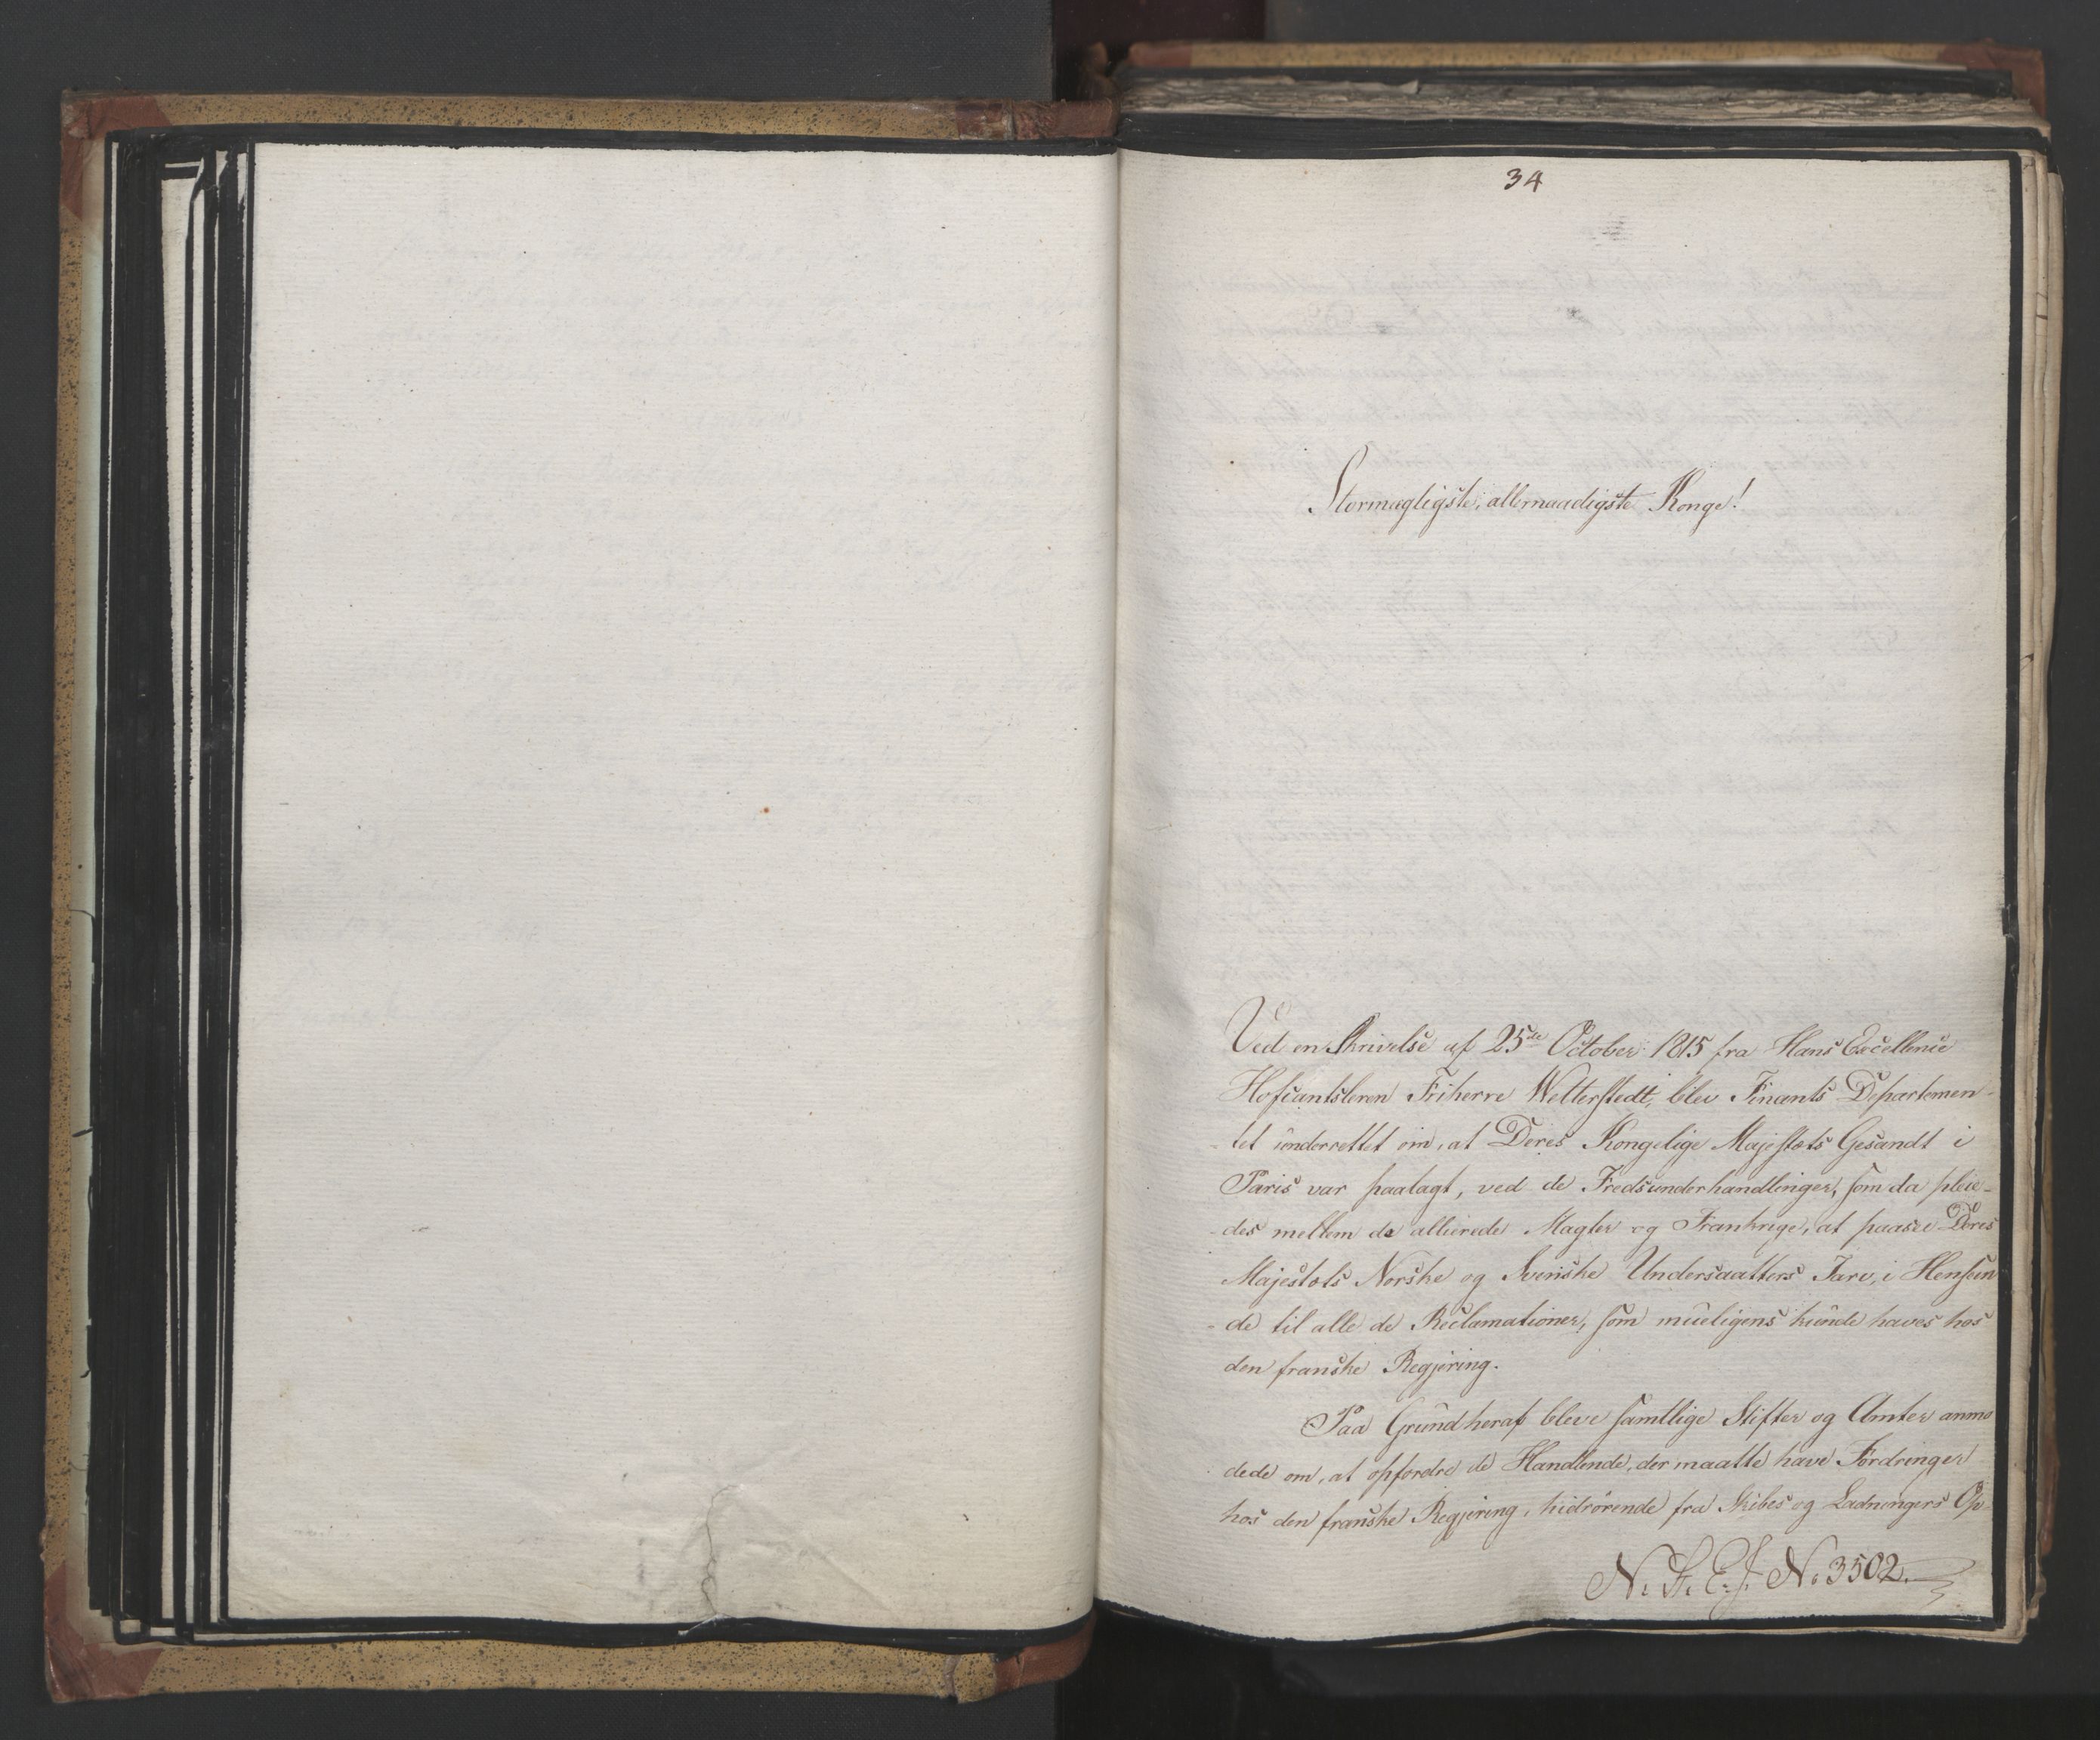 34
Stormægtigste, allernaadigste Konge!
Ved en Skrivelse af 25de October 1815 fra Hans Excellence
Hofcantsleren Friherre Wetterstedt, blev Finants Departemen-
-tet underrettet om, at Deres Kongelige Majestæts Gesandt i
Paris var paalagt, ved de Fredsunderhandlinger, som da pleie-
-des mellem de allierede Magter og Frankrige, at paasee Deres
Majestæts Norske og Svenske Undersaatters Tarv, i Henseen
-de til alle de Reclamationer, som mueligens kunde haves hos
den franske Regjering.
Paa Grund heraf bleve samtlige Stifter og Amter anmo
dede om, at opfordre de Handlende, der maatte have Fordringer
hos den franske Regjering, hidrørende fra Skibes og Ladningers Op-
N. St. E. J. No 3502.